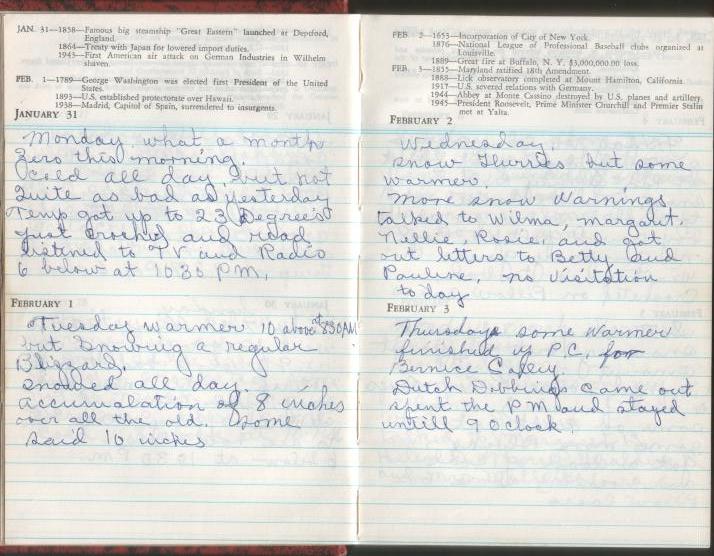 JAN. 31—1858—Famous big steamship "Great Eastern" launched at Deptford,
England.
1864—Treaty with Japan for lowered import duties.
1943—First American air attack on German Industries in Wilhelm
shaven.
FEB. 1—1789—George Washington was elected first President of the United
States.
1893—U.S. established protectorate over Hawaii.
1938—Madrid, Capitol of Spain, surrendered to insurgents.
JANUARY 31
Monday, what a month
Zero this morning.
Cold all day, but not
Quite as bad as yesterday
Temp got up to 23 Degree's
just crochied and read
listened to TV and Radio
6 below at 10:30 PM.
FEBRUARY 1
Tuesday warmer 10 above at 830AM
but snowing a regular
Blizzard.
snowed all day.
accumalation of 8 inches
over all the old. some
said 10 inches
FEB. 2—1653—Incorporation of City of New York.
1876—National League of Professional Baseball clubs organized at
Louisville.
1889—Great fire at Buffalo, N. Y. $3,000,000.00 loss.
FEB. 3—1855—Maryland ratified 18th Amendment.
1888—Lick observatory completed at Mount Hamilton, California.
1917—U.S. severed relations with Germany.
1944—Abbey at Monte Cassino destroyed by U.S. planes and artillery.
1945—President Roosevelt, Prime Minister Churchill and Premier Stalin
met at Yalta.
FEBRUARY 2
Wednesday.
snow Flurries but some
warmer.
more snow warnings
talked to Wilma, margaut.
Nellie Rosie, and got
out letters to Betty and
Pauline, no visitation
to day
FEBRUARY 3
Thursday some warmer
finished up P.C. for
Bernice
Dutch Dibbings came out
spent the PM and stayed
untill 9 Oclock.